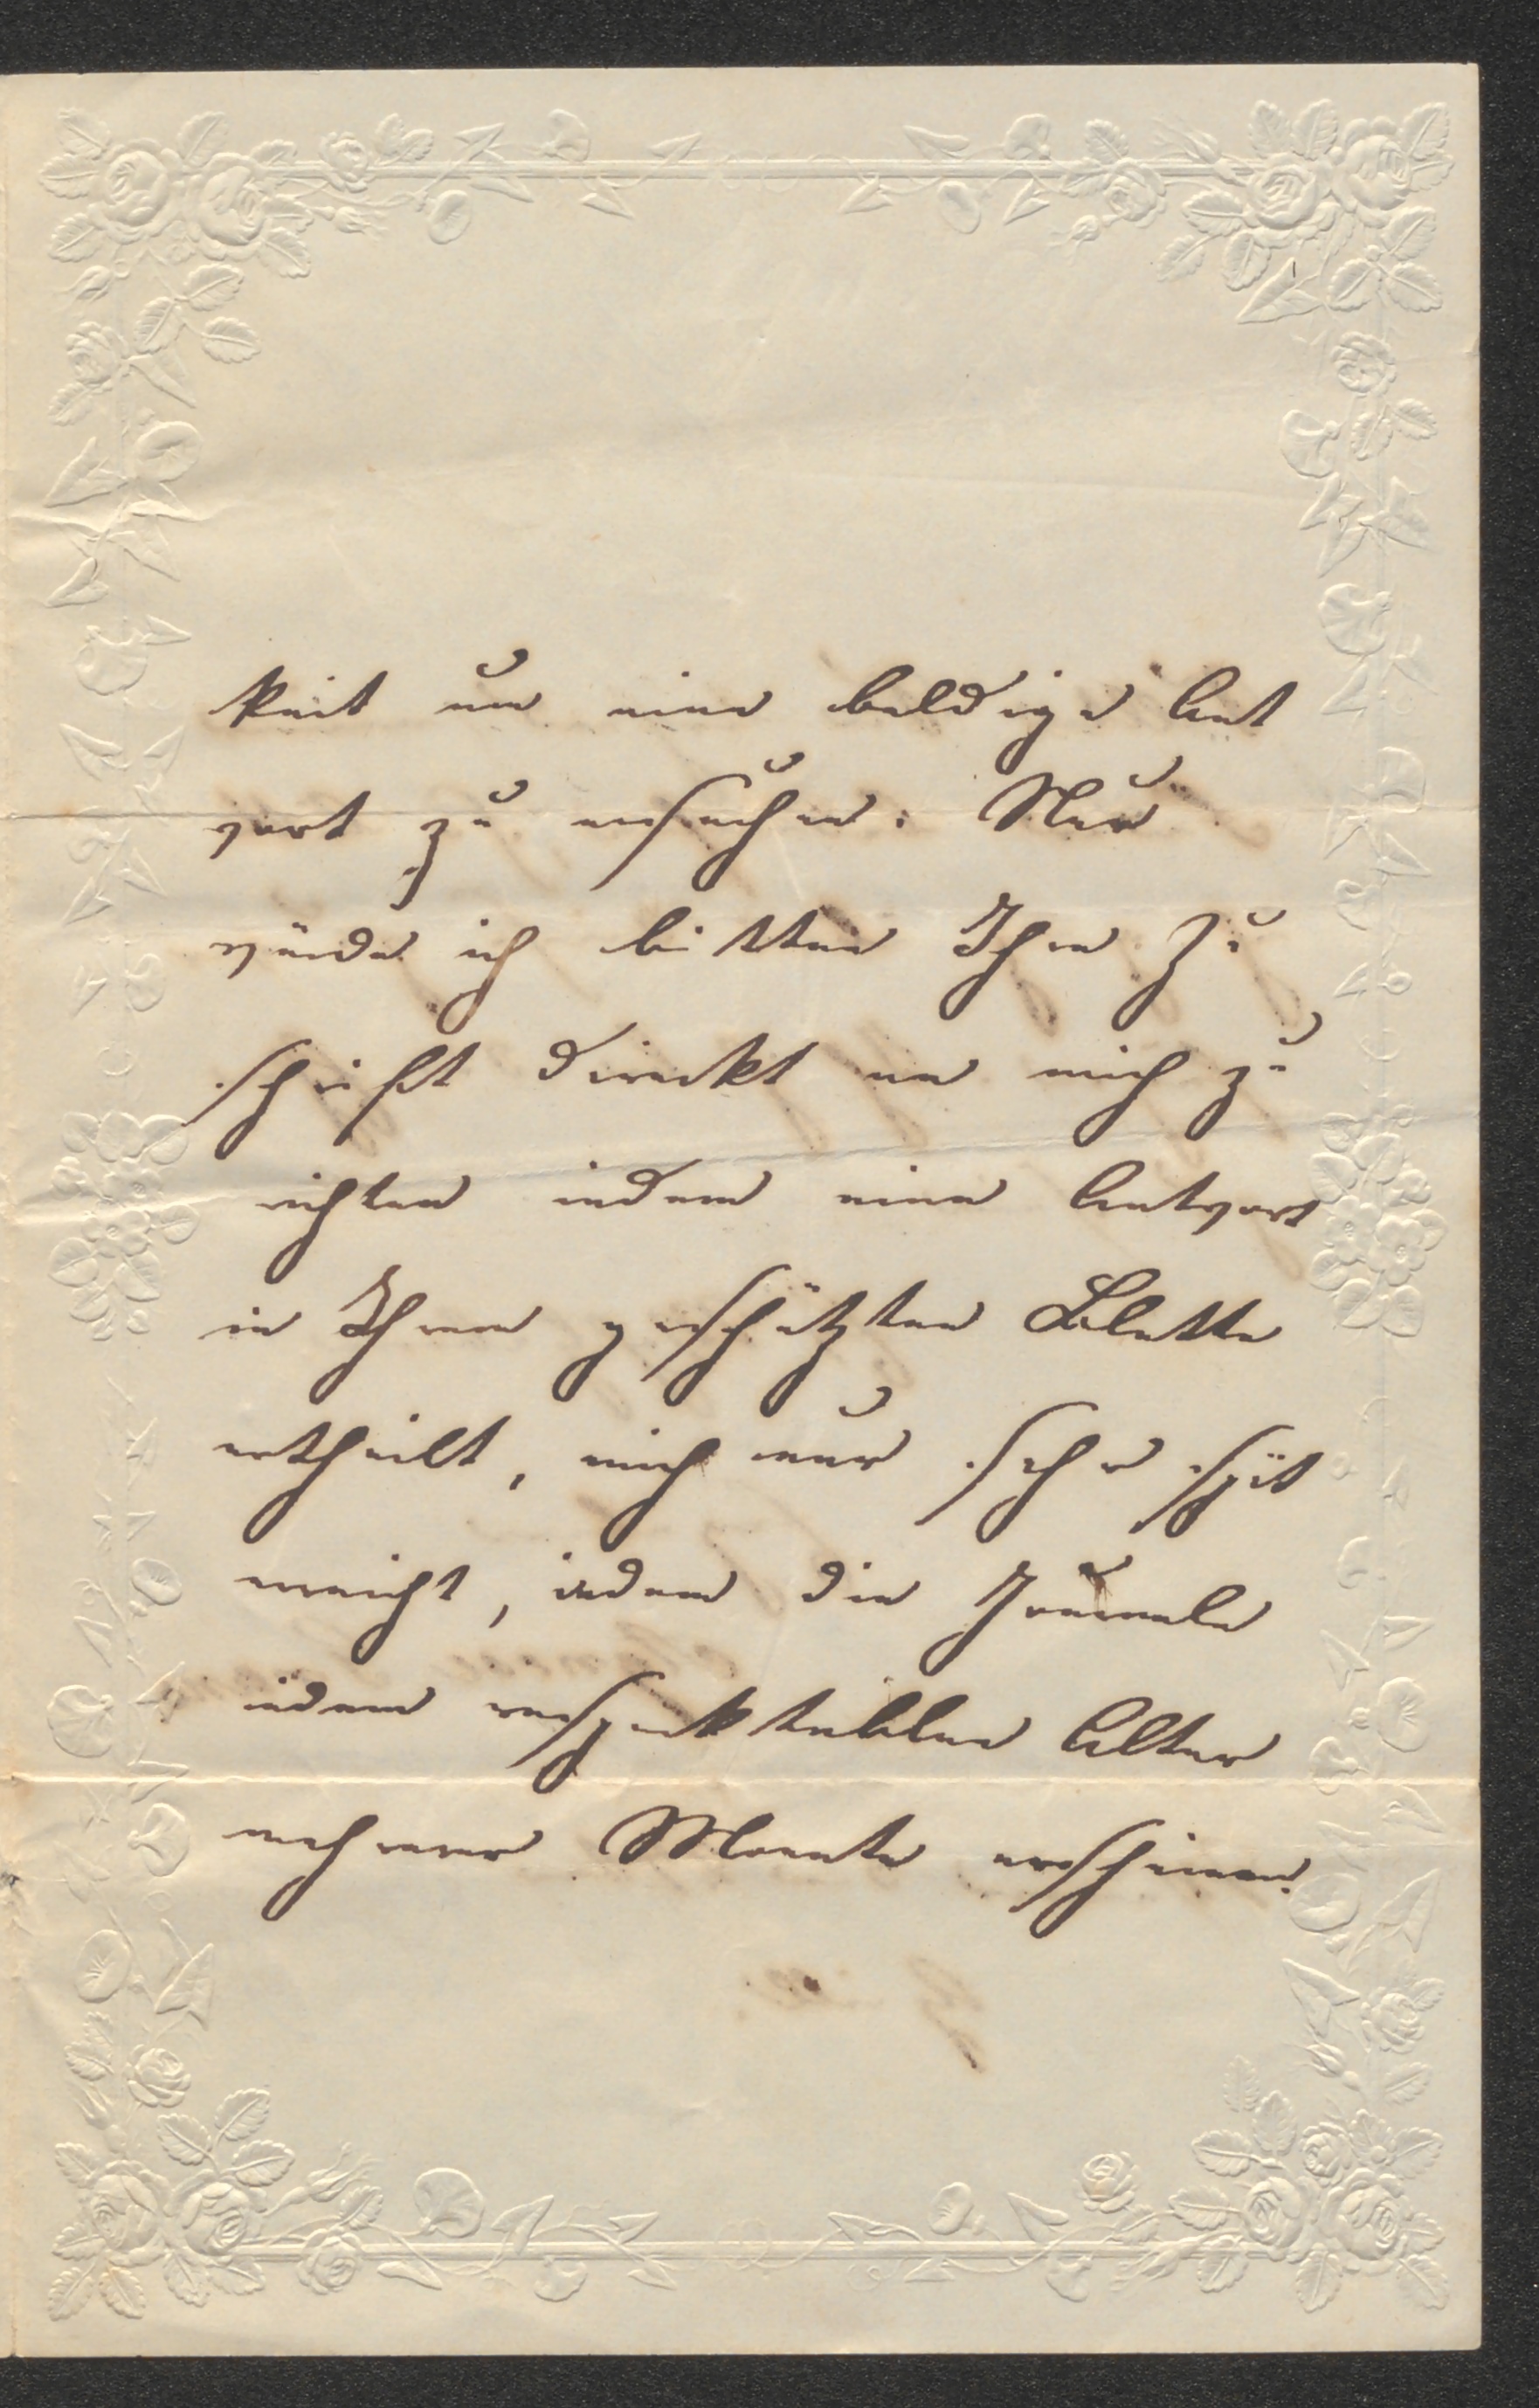 keit um eine baldige Ant
wort zu ersuchen. Nur
würde ich bitten Ihre Zu
schrift direckt an mich zu
richten indem eine Antwort
in Ihrem geschätzten Blatte
ertheilt, mich nur sehr spät
erreicht, indem die Journale
in dem respecktablen Alter
mehrerer Monate erscheinen.